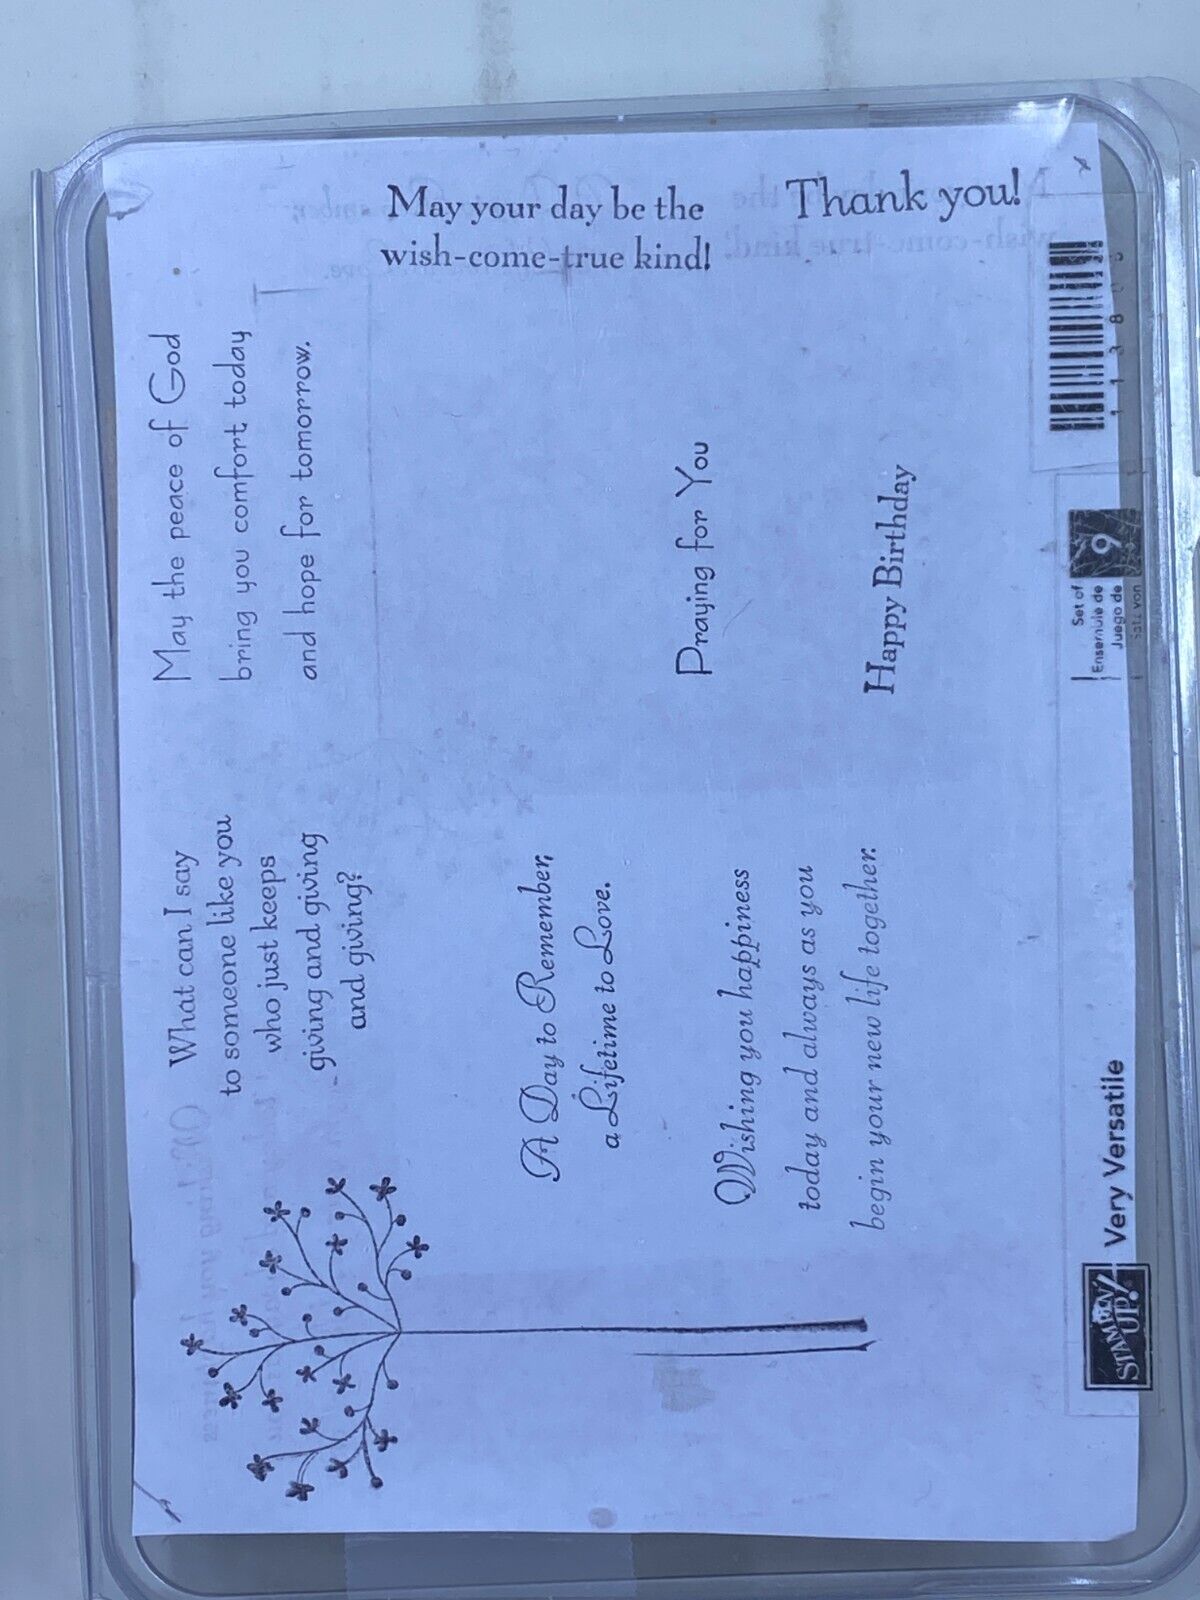 May your day be the
wish-come-true kind!
Thank you!
May the peace of God
bring you comfort today
and hope for tomorrow.
What can I say
to someone like you
who just keeps
giving and giving
and giving?
Praying for You
Happy Birthday
A Day to Remember,
a Lifetime to Love.
Wishing you happiness
today and always as you
begin your new life together.
Set of
Ensemble de
Juego de
9
STAMPIN'
UP!
Very Versatile